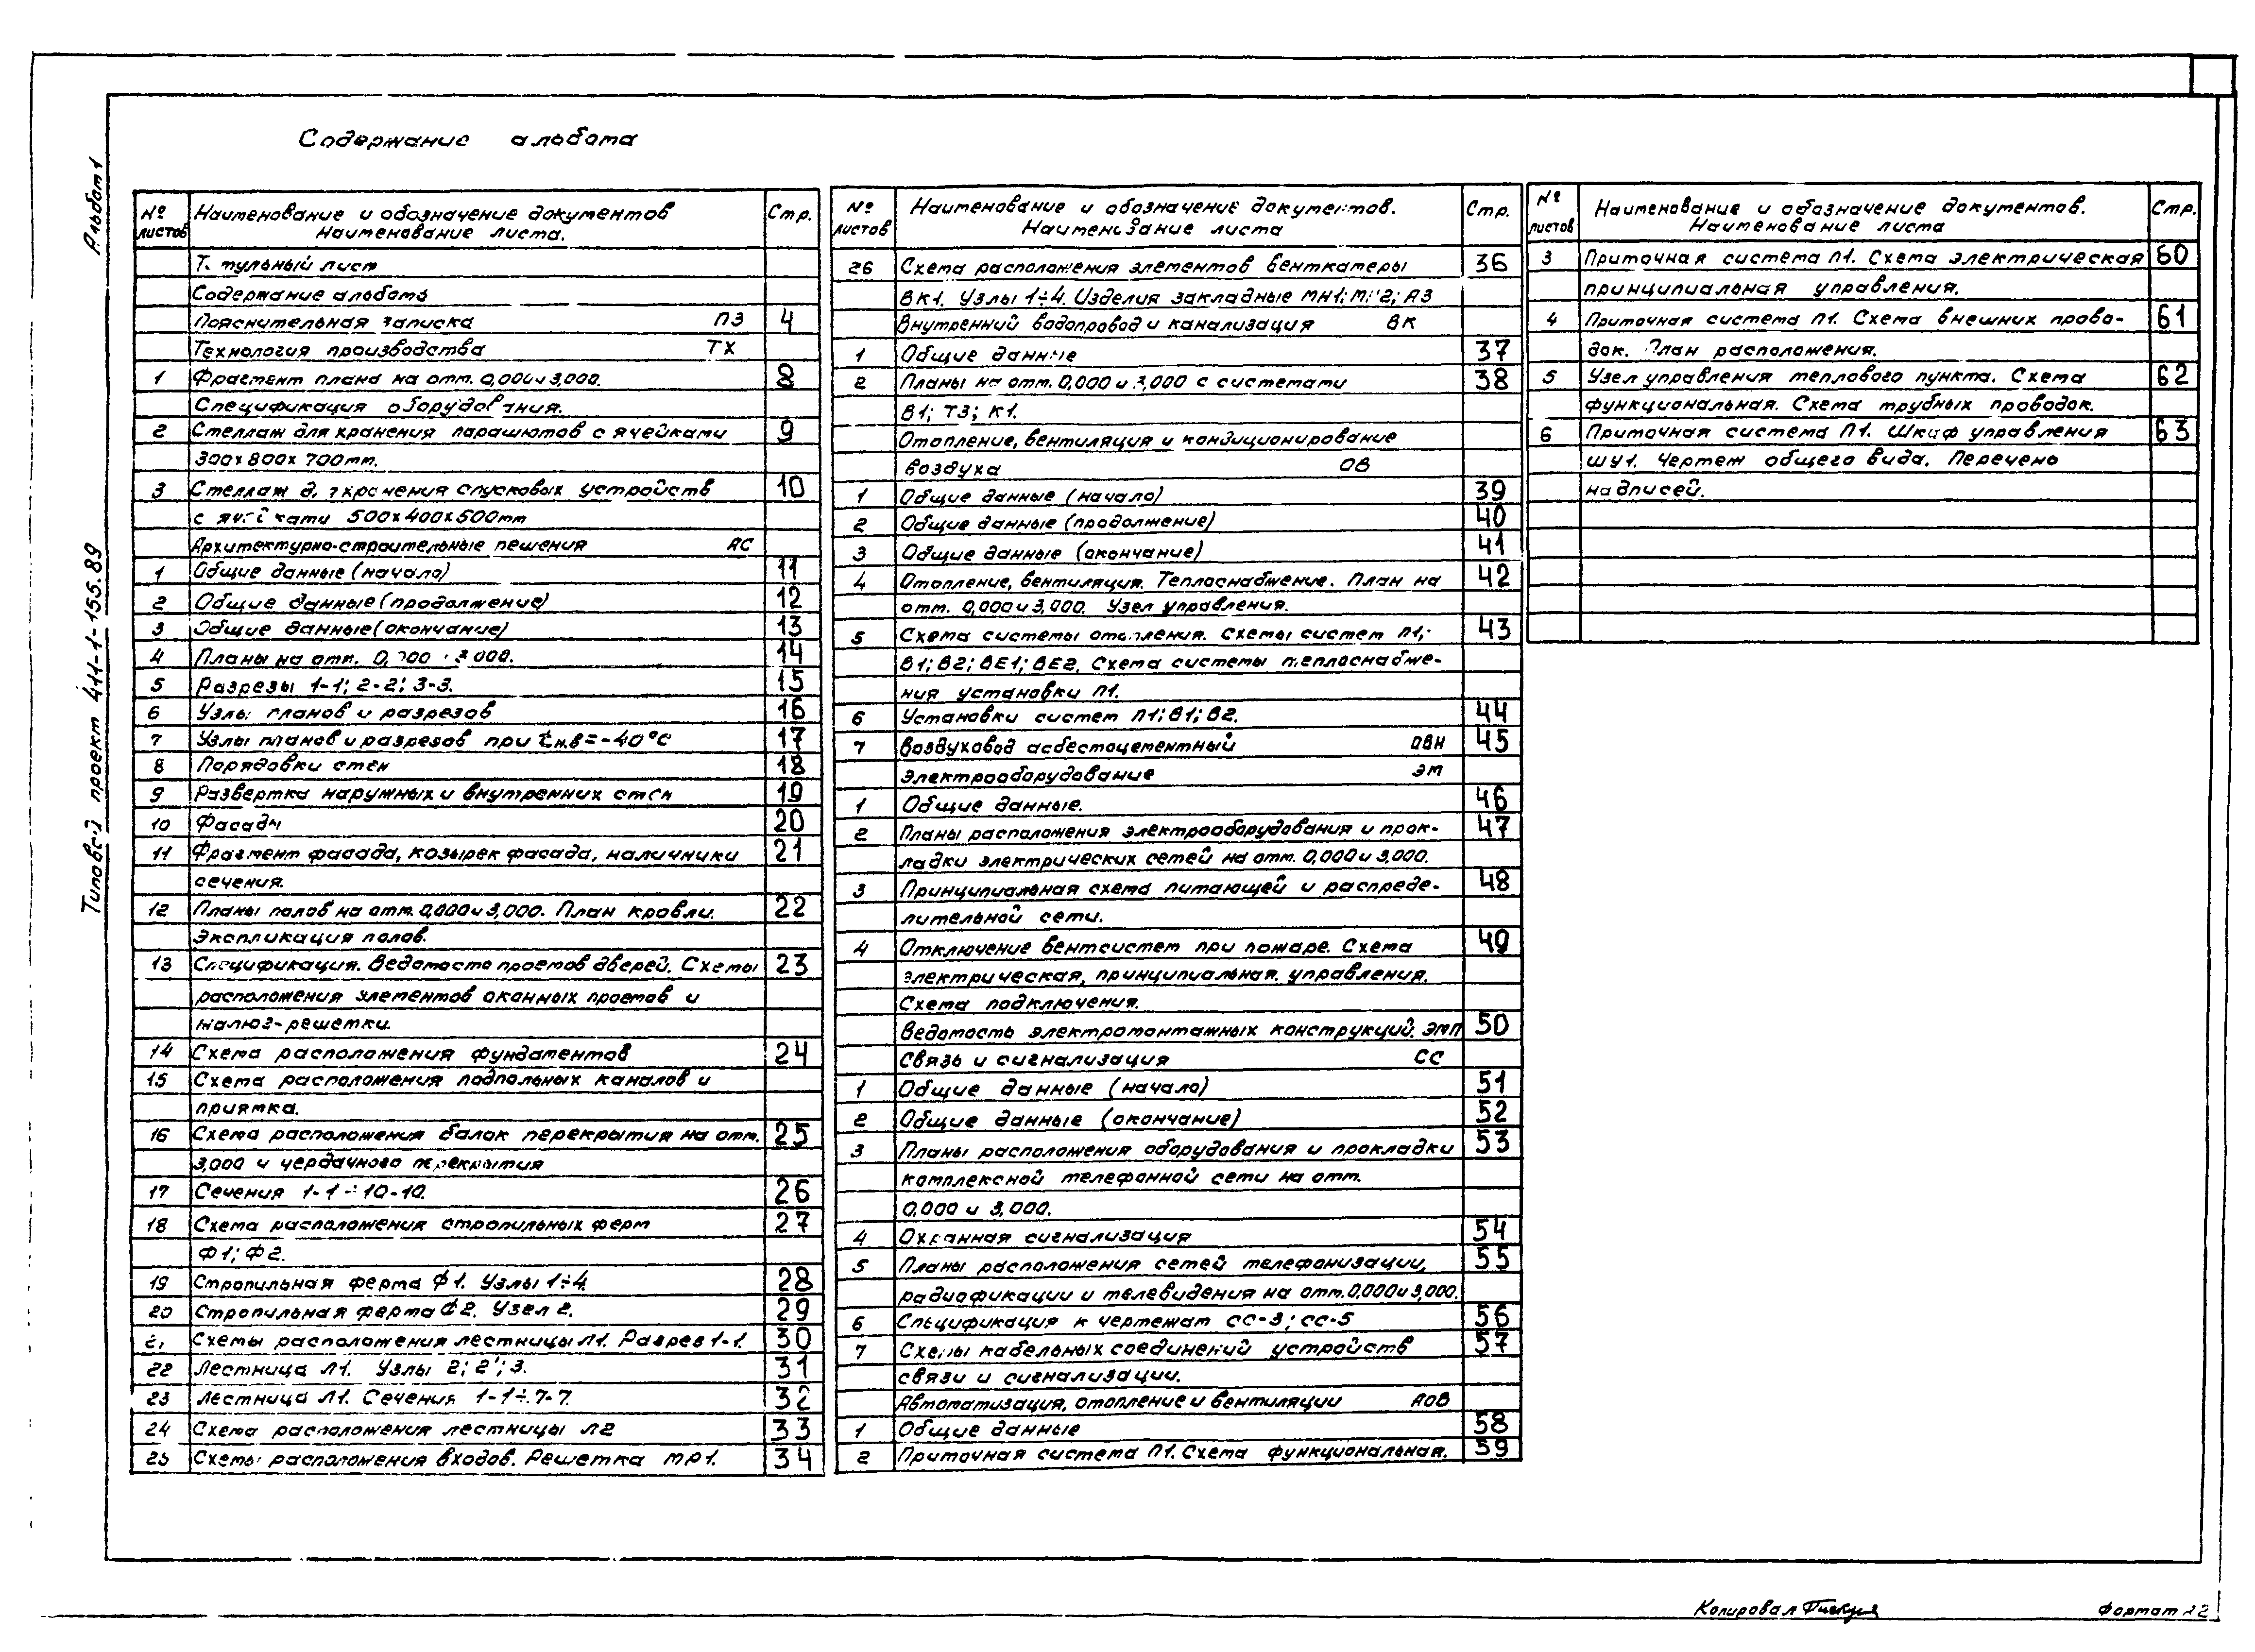 Содержание альбома
Альбом 1
Типовой проект 411-1-155.89
№ листов Наименование и обозначение документов Наименование листа. Стр.
Титульный лист
Содержание альбома
Пояснительная записка ПЗ 4
Технология производства ТХ
1 Фрагмент плана на отм. 0,000 и 3,000. 8
Спецификация оборудования.
2 Стеллаж для хранения парашютов с ячейками 9
300х800х700мм.
3 Стеллаж для хранения спусковых устройств 10
с ячейками 500х400х500мм
Архитектурно-строительные решения АС
1 Общие данные (начало) 11
2 Общие данные (продолжение) 12
3 Общие данные (окончание) 13
4 Планы на отм. 0,000 и 3,000. 14
5 Разрезы 1-1; 2-2; 3-3. 15
6 Узлы планов и разрезов 16
7 Узлы планов и разрезов при tн.в=-40°С 17
8 Порядовки стен 18
9 Развертка наружных и внутренних стен 19
10 Фасады 20
11 Фрагмент фасада, козырек фасада, наличники 21
сечения.
12 Планы полов на отм. 0,000 и 3,000. План кровли. 22
Экспликация полов.
13 Спецификация. Ведомость проемов дверей. Схемы 23
расположения элементов оконных проемов и
жалюз-решетки.
14 Схема расположения фундаментов 24
15 Схема расположения подпольных каналов и
приямка.
16 Схема расположения балок перекрытия на отм. 25
3,000 и чердачного перекрытия
17 Сечения 1-1÷10-10. 26
18 Схема расположения стропильных ферм 27
Ф1; Ф2.
19 Стропильная ферма Ф1. Узлы 1÷4 28
20 Стропильная ферма Ф2. Узел 2. 29
21 Схемы расположения лестницы Л1. Разрез 1-1. 30
22 Лестница Л1. Узлы 2; 2'; 3. 31
23 Лестница Л1. Сечения 1-1÷7-7. 32
24 Схема расположения лестницы Л2 33
25 Схемы расположения входов. Решетка МР1. 34
№ листов Наименование и обозначение документов. Наименование листа Стр.
26 Схема расположения элементов венткамеры 36
ВК1. Узлы 1÷4. Изделия закладные МН1; МН2; А3
Внутренний водопровод и канализация ВК
1 Общие данные 37
2 Планы на отм. 0,000 и 3,000 с системами 38
В1; Т3; К1.
Отопление, вентиляция и кондиционирование
воздуха ОВ
1 Общие данные (начало) 39
2 Общие данные (продолжение) 40
3 Общие данные (окончание) 41
4 Отопление, вентиляция. Теплоснабжение. План на 42
отм. 0,000 и 3,000. Узел управления.
5 Схема системы отопления. Схемы систем П1; 43
В1; В2; ВЕ1; ВЕ2. Схема системы теплоснабже-
ния установки П1.
6 Установки систем П1; В1; В2. 44
7 Воздуховод асбестоцементный ОВН 45
Электрооборудование ЭМ
1 Общие данные. 46
2 Планы расположения электрооборудования и прок- 47
ладки электрических сетей на отм. 0,000 и 3,000.
3 Принципиальная схема питающей и распреде- 48
лительной сети.
4 Отключение вентсистем при пожаре. Схема 49
электрическая, принципиальная. управления.
Схема подключения.
Ведомость электромонтажных конструкций. ЭМП 50
Связь и сигнализация СС
1 Общие данные (начало) 51
2 Общие данные (окончание) 52
3 Планы расположения оборудования и прокладки 53
комплексной телефонной сети на отм.
0,000 и 3,000.
4 Охранная сигнализация 54
5 Планы расположения сетей телефонизации, 55
радиофикации и телевидения на отм. 0,000 и 3,000.
6 Спецификация к чертежам СС-3; СС-5 56
7 Схемы кабельных соединений устройств 57
связи и сигнализации.
Автоматизация, отопление и вентиляции АОВ
1 Общие данные 58
2 Приточная система П1. Схема функциональная. 59
№ листов Наименование и обозначение документов. Наименование листа Стр.
3 Приточная система П1. Схема электрическая 60
принципиальная управления.
4 Приточная система П1. Схема внешних прово- 61
док. План расположения.
5 Узел управления теплового пункта. Схема 62
функциональная. Схема трубных проводок.
6 Приточная система П1. Шкаф управления 63
ШУ1. Чертеж общего вида. Перечень
надписей.
Копировал
Формат А2